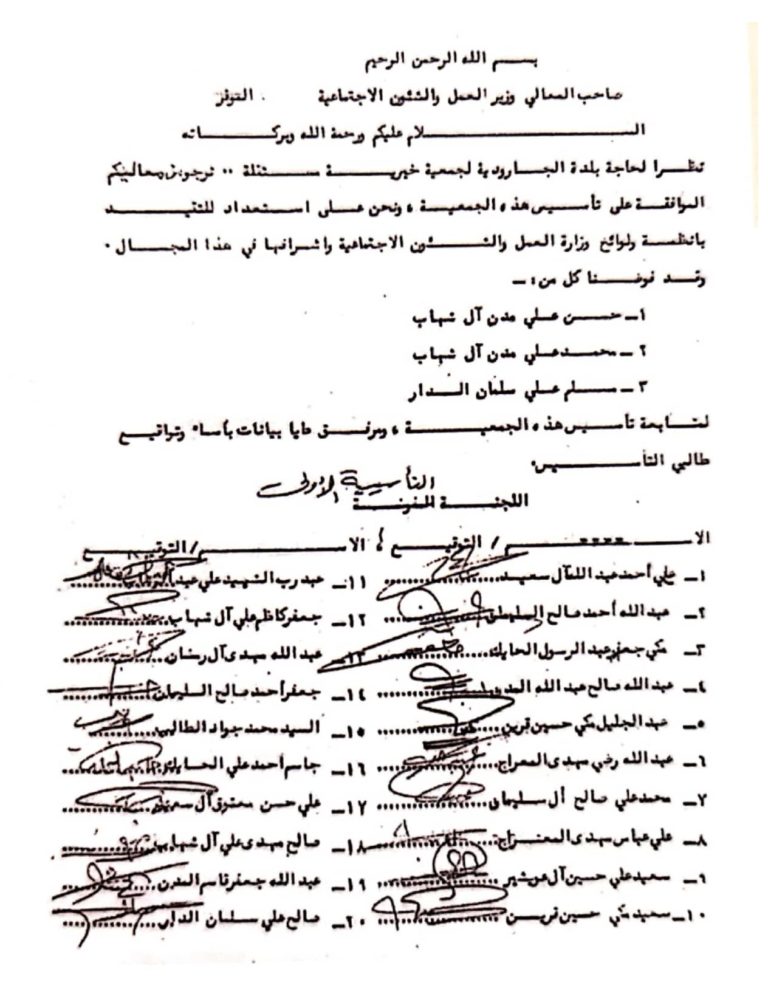 بسم الله الرحمن الرحيم
صاحب المعالي وزير العمل والشئون الاجتماعية . الموقر
السلام عليكم ورحمة الله وبركاته
نظرا لحاجة بلدة الجارودية لجمعية خيرية مستقلة ٠٠ نرجو من معاليكم
الموافقة على تأسيس هذه الجمعية ، ونحن على استعداد للتقيد
بانظمة ولوائح وزارة العمل والشئون الاجتماعية واشرافها في هذا المجال ٠
وقد فوضنا كل من :ـ
١ـ حسن علي مدن آل شهاب
٢ ـ محمد علي مدن آل شهاب
٣ ـ سلم علي سلمان الدار
لمتابعة تأسيس هذه الجمعية ، ومرفق طيا بيانات بأسماء وتواقيع
طالبي التأسيس٠
التأسيسية الأولى
اللجنة المفوضة
الاسم / التوقيع ، الاسم / التوقيع
١ـ علي أحمد عبد الله آل سعيد ١١ـ عبد رب الشهيد علي عبد
٢ـ عبد الله أحمد صالح السليمان ١٢ـ جعفر كاظم علي آل شهاب
٣ـ مكي جعفر عبد الرسول الحايك ١٣ـ عبد الله مهدي آل رضان
٤ـ عبد الله صالح عبد الله المدن ١٤ـ جعفر أحمد صالح السليمان
٥ـ عبد الجليل مكي حسين قرين ١٥ـ السيد محمد جواد الطالب
٦ـ عبد الله رضي مهدي المعراج ١٦ـ جاسم أحمد علي الحايك
٧ـ محمد علي صالح آل سليمان ١٧ـ علي حسن معتوق آل سعيد
٨ـ علي عباس مهدي المعراج ١٨ـ صالح مهدي علي آل شهاب
٩ـ سعيد علي حسين آل عويشير ١٩ـ عبد الله جعفر قاسم المدن
١٠ـ سعيد مكي حسين قرين ٢٠ـ صالح علي سلمان الدار